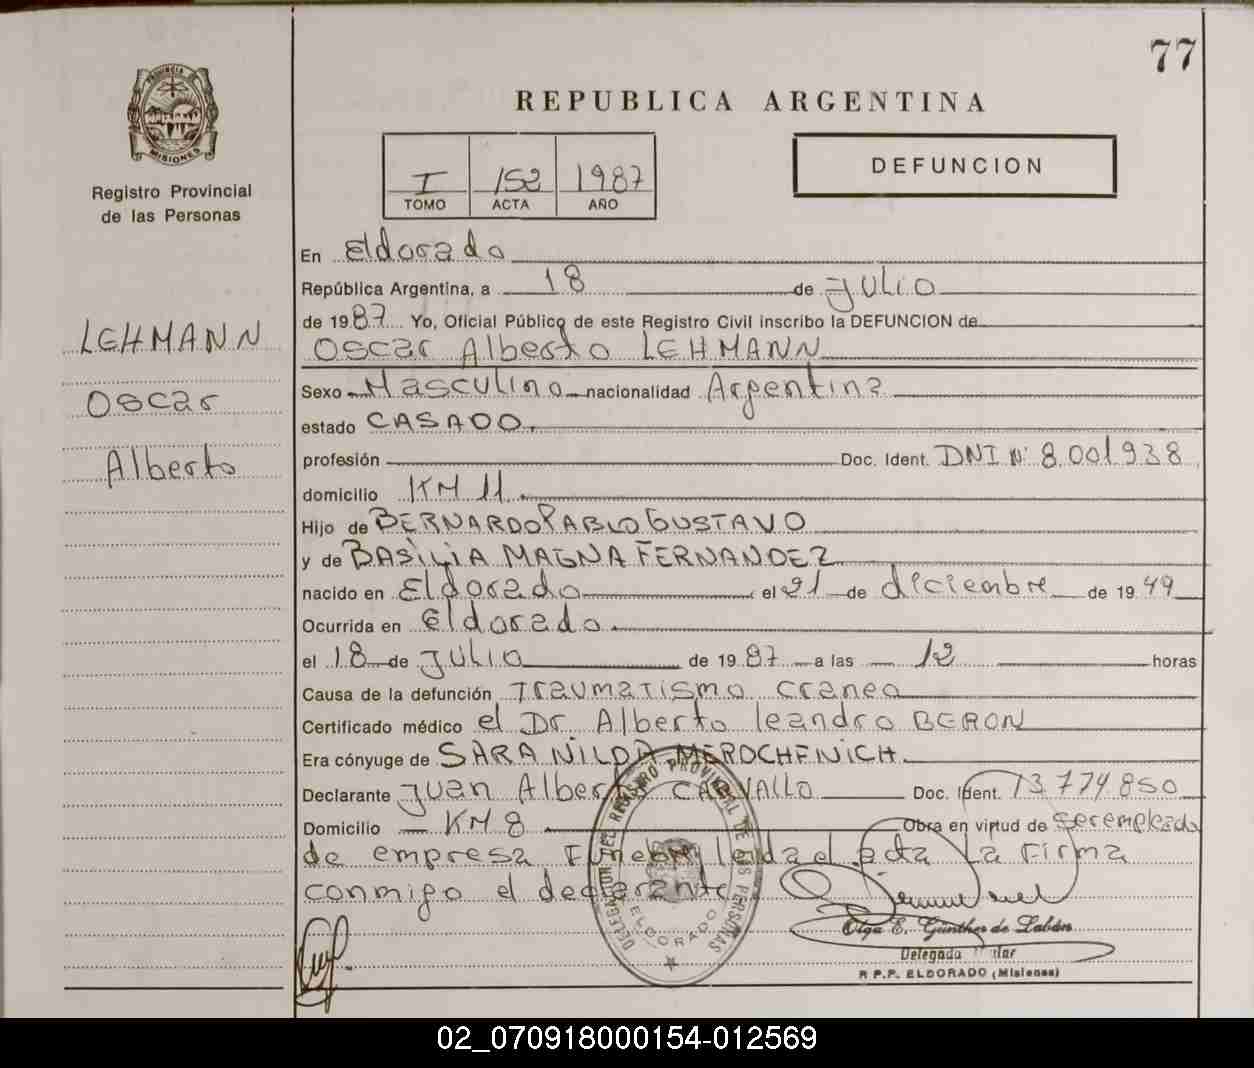 77
PROVINCIA DE
MISIONES
Registro Provincial
de las Personas
REPUBLICA ARGENTINA
I 152 1987
TOMO ACTA AÑO
DEFUNCION
LEHMANN
Oscar
Alberto
En Eldorado
República Argentina, a 18 de Julio
de 1987 Yo, Oficial Público de este Registro Civil inscribo la DEFUNCION de
Oscar Alberto LEHMANN
Sexo Masculino nacionalidad Argentina
estado CASADO.
profesión Doc. Ident. DNI Nº 8.001938
domicilio KM 11
Hijo de BERNARDO PABLO GUSTAVO
y de BASILIA MAGNA FERNANDEZ
nacido en Eldorado el 21 de diciembre de 1949
Ocurrida en Eldorado
el 18 de Julio de 1987 a las 12 horas
Causa de la defunción Traumatismo craneo
Certificado médico el Dr. Alberto leandro BERON
Era cónyuge de SARA NILDA MEROCHENICH
Declarante Juan Alberto CARVALLO Doc. Ident. 13.774.850
Domicilio KM 8 Obra en virtud de ser empleado
de empresa Funebre leida el acta la Firma
conmigo el declarante
DELEGACION DEL REGISTRO PROVINCIAL DE LAS PERSONAS
ELDORADO
Olga E. Günther de Labán
Delegada Titular
R.P.P. ELDORADO (Misiones)
02_070918000154-012569